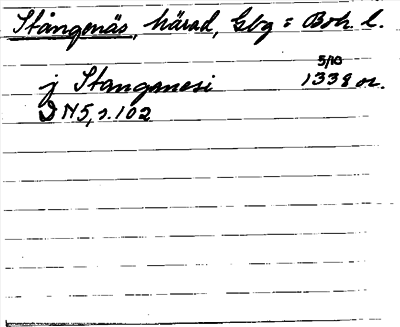 Stångenäs, härad, Gbg = Boh l.
5/10
j Stanganesi 1338 or.
DN 5, s. 102